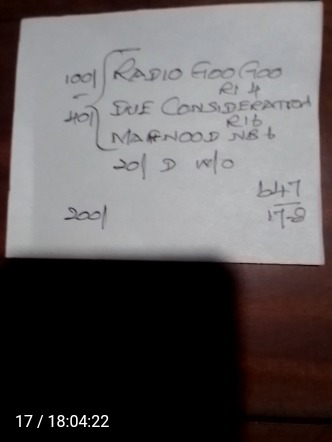 100/ RADIO GOO GOO
R1 4
40/ DUE CONSIDERATION
R1 6
MARNOOD NB 6
20/ D W/O
647
200/ 17-8
17 / 18:04:22